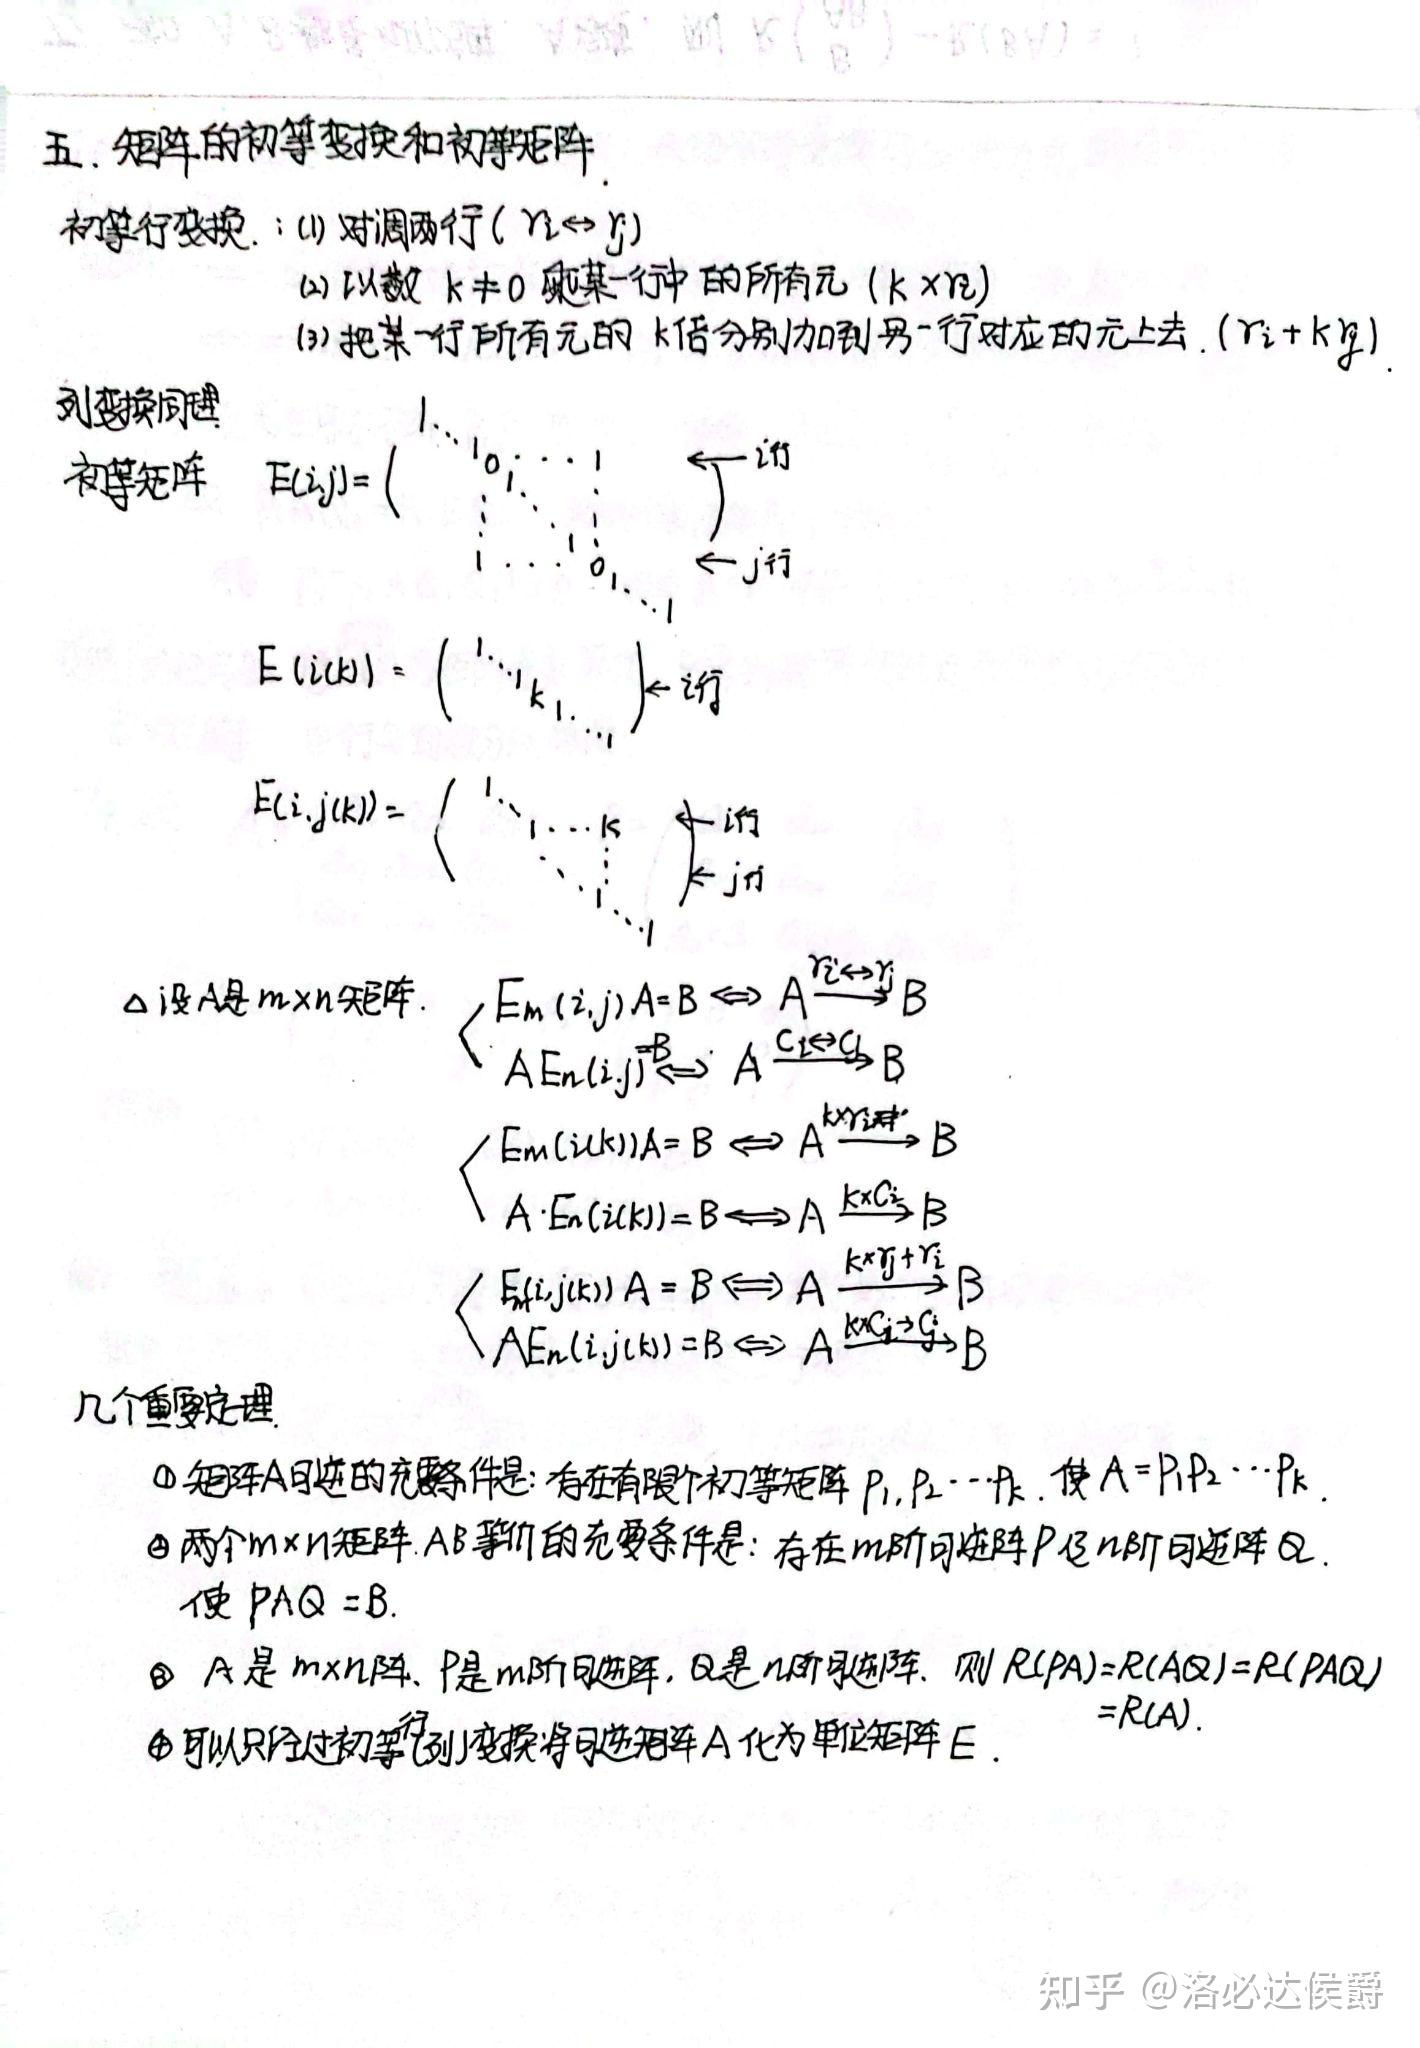 五、矩阵的初等变换和初等矩阵.
初等行变换.：(1) 对调两行( ri↔rj)
(2) 以数 k≠0 乘某一行中的所有元 (k×ri)
(3) 把某一行所有元的 k倍分别加到另一行对应的元上去.(ri+krj).
列变换同理
初等矩阵 E(i,j)= ( 1 ⋱ 1 0 ··· 1 ← i行
1 ⋱ 1
1 ··· 0 1 ⋱ 1 ← j行
E(i(k)) = ( 1 ⋱ 1 k 1 ⋱ 1 ) ← i行
E(i,j(k)) = ( 1 ⋱ 1 ··· k ← i行
1 ⋱ 1 ) ← j行
△设A是m×n矩阵. Em(i,j)A=B ⇔ A ri↔rj→ B
AEn(i,j)=B ⇔ A ci↔cj→ B
Em(i(k))A=B ⇔ A k×ri→ B
A·En(i(k))=B ⇔ A k×Ci→ B
Em(i,j(k))A=B ⇔ A k×rj+ri→ B
AEn(i,j(k))=B ⇔ A k×Ci→Cj→ B
几个重要定理.
① 矩阵A可逆的充要条件是：存在有限个初等矩阵 P1,P2···Pk.使A=P1P2···Pk.
② 两个m×n矩阵.AB等价的充要条件是：存在m阶可逆阵P及n阶可逆阵Q.
使 PAQ=B.
③ A是m×n阵、P是m阶可逆阵，Q是n阶可逆阵. 则R(PA)=R(AQ)=R(PAQ)
=R(A).
④ 可以只经过初等行(列)变换将可逆矩阵A化为单位矩阵E.
知乎 @洛必达侯爵